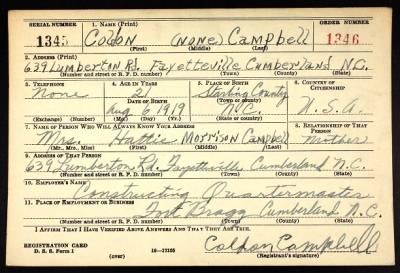 SERIAL NUMBER 1. NAME (Print) ORDER NUMBER
1345 Coldon (NONE) Campbell 1346
(First) (Middle) (Last)
2. ADDRESS (Print)
639 Lumberton Rd. Fayetteville Cumberland N.C.
(Number and street or R. F. D. number) (Town) (County) (State)
3. TELEPHONE 4. AGE IN YEARS 5. PLACE OF BIRTH 6. COUNTRY OF CITIZENSHIP
None 21
DATE OF BIRTH (Town or county)
Aug 6 1919 N.C. U.S.A.
(Exchange) (Number) (Mo.) (Day) (Yr.) (State or country)
7. NAME OF PERSON WHO WILL ALWAYS KNOW YOUR ADDRESS 8. RELATIONSHIP OF THAT PERSON
Mrs. Hattie Morrison Campbell Mother
(Mr., Mrs., Miss) (First) (Middle) (Last)
9. ADDRESS OF THAT PERSON
639 Lumberton Rd. Fayetteville, Cumberland N.C.
(Number and street or R. F. D. number) (Town) (County) (State)
10. EMPLOYER'S NAME
Constructing Quartermaster
11. PLACE OF EMPLOYMENT OR BUSINESS
Fort Bragg Cumberland N.C.
(Number and street or R. F. D. number) (Town) (County) (State)
I AFFIRM THAT I HAVE VERIFIED ABOVE ANSWERS AND THAT THEY ARE TRUE.
REGISTRATION CARD
D. S. S. Form 1 (over) 16—17105 Coldon Campbell
(Registrant's signature)